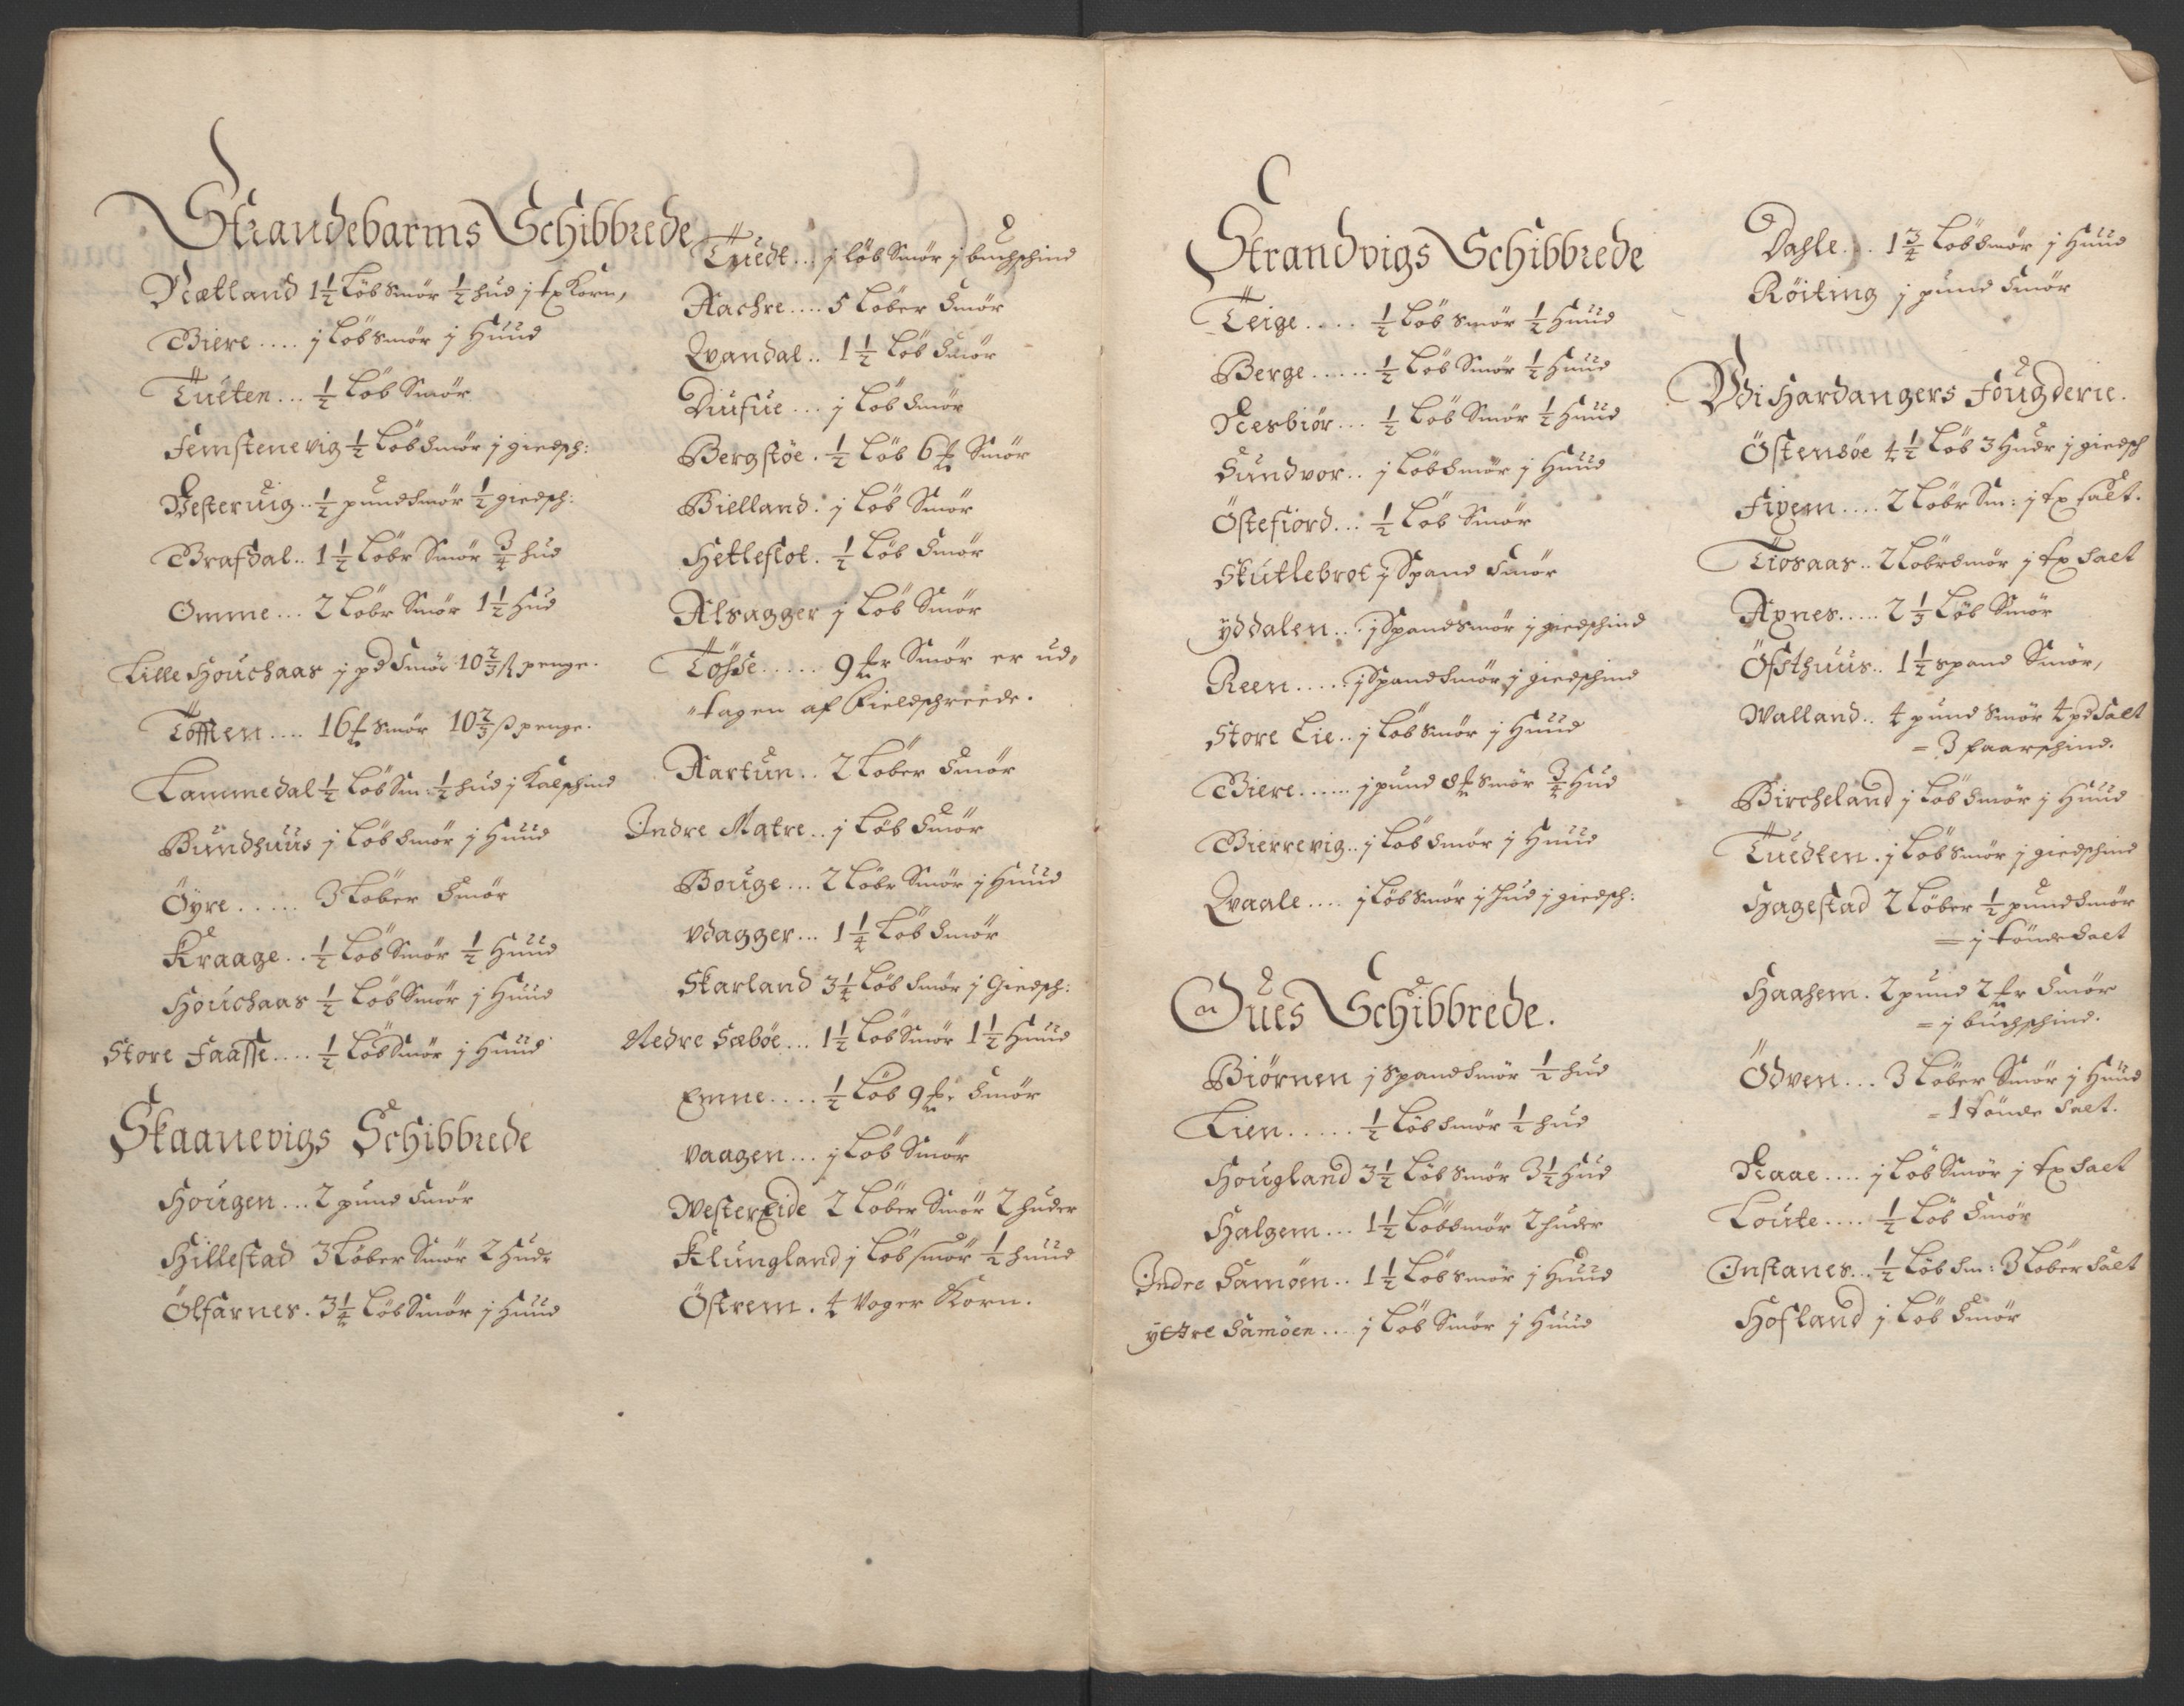 Strandebarms Schibbrede
Nætland 1 1/2 Löb Smör 1/2 hud j tp Korn,
Biere .... j Löb Smör j Huud
Tueten ... 1/2 Löb Smör
Femstenevig 1/2 Löb Smör j giedsch:
Vestervig .. 1/2 pund Smör 1/2 giedsch:
Brafdal .. 1 1/2 Löbr Smör 3/4 hud
Omme ... 2 Löbr Smör 1 1/2 Hud
Lille Houchaas j pd Smör 10 2/3 ß penge.
Töfften .... 16 Smör 10 2/3 ß penge.
Lammedal 1/2 Löb Sm: 1/2 hud j Kalfschind
Bundhuus j Löb Smör j Huud
Öyre ..... 3 Löber Smör
Kraage .. 1/2 Löb Smör 1/2 Huud
Houchaas 1/2 Löb Smör j Huud
Store Faasse .... 1/2 Löb Smör j Huud
Skaanevigs Schibbrede
Hougen ... 2 pund Smör
Hillestad 3 Löber Smör 2 Hudr
Ölfarnes . 3 1/4 Löb Smör j Huud
Tuedt ... j löb Smör j buchschind
Aachre .... 5 Löber Smör
Qvandal .. 1 1/2 Löb Smör
Diufue ... j Löb Smör
Bergstöe . 1/2 Löb 6 Smör
Bielland . j Löb Smör
Hetleflot . 1/2 Löb Smör
Alsagger j Löb Smör
Tösse ..... 9 Smör er ud=
"tagen af Fieldschreede.
Aartun .. 2 Löber Smör
Indre Matre .. j Löb Smör
Bouge ... 2 Löbr Smör j Huud
Vdagger ... 1 1/4 Löb Smör
Skarland 3 1/4 Löb Smör j Giedsch:
Nedre Sæböe ... 1 1/2 Löb Smör 1 1/2 Huud
Emne .... 1/2 Löb 9 Smör
Vaagen ... j Löb Smör
WesterEide 2 Löber Smör 2 huder
Klungland j Löb smör 1/2 huud
Östrem . 4 Voger Korn.
Strandvigs Schibbrede
Teige .... 1/2 Löb Smör 1/2 Huud
Berge ..... 1/2 Löb Smör 1/2 Huud
Nesbiör ... 1/2 Löb Smör 1/2 Huud
Sundvor .. j Löb Smör j Huud
Östefiord ... 1/2 Löb Smör
Skutlebrot j Spand Smör
Yddalen ... j Spand Smör j giedschind
Reen ..... j Spand Smör j giedschind
Store Lie .. j Löb Smör j Huud
Biere ...... j pund 8 Smör 3/4 Hud
Bierrevig .. j Löb Smör j Huud
Qvaale .... j Löb Smör j Hud j giedsch:
Oues Schibbrede.
Biørnen j Spand Smör 1/2 hud
Lien ..... 1/2 Löb Smör 1/2 hud
Hougland 3 1/2 Löb Smör 3 1/2 Hud
Halgem ... 1 1/2 Löb Smör 2 huder
Indre Samöen .. 1 1/2 Löb Smör j Huud
yttre Samöen .... j Löb Smör j Huud
Dahle ... 1 3/4 Löb Smör j Huud
Röiting j pund Smör
Vdi Hardangers Fougderie.
Östensöe 4 1/2 Löb 3 Hudr j giedsch
Fixem .... 2 Löbr Sm: j tp salt.
Tiosaas .. 2 Löbr Smör j tp Salt
Axnes ..... 2 1/3 Löb Smör
Öfsthuus .. 1 1/2 spand Smör,
Walland .. 4 pund Smör 4 pd Salt
= 3 faarschind.
Bircheland j Löb Smör j Huud
Tuedten . j Löb Smör j giedschind
Hagestad 2 Löber 1/2 pund Smör
= j tönde Salt
Haahem . 2 pund 2 Smör
= j buchschind.
Ödven ... 3 Löber Smör j Huud
= 1 tönde Salt.
Raae .... j Löb Smör j tp Salt
Loute .... 1/2 Löb Smör
Instanes ... 1/2 Löb Sm: 3 Löber Salt
Hofland j Löb Smör